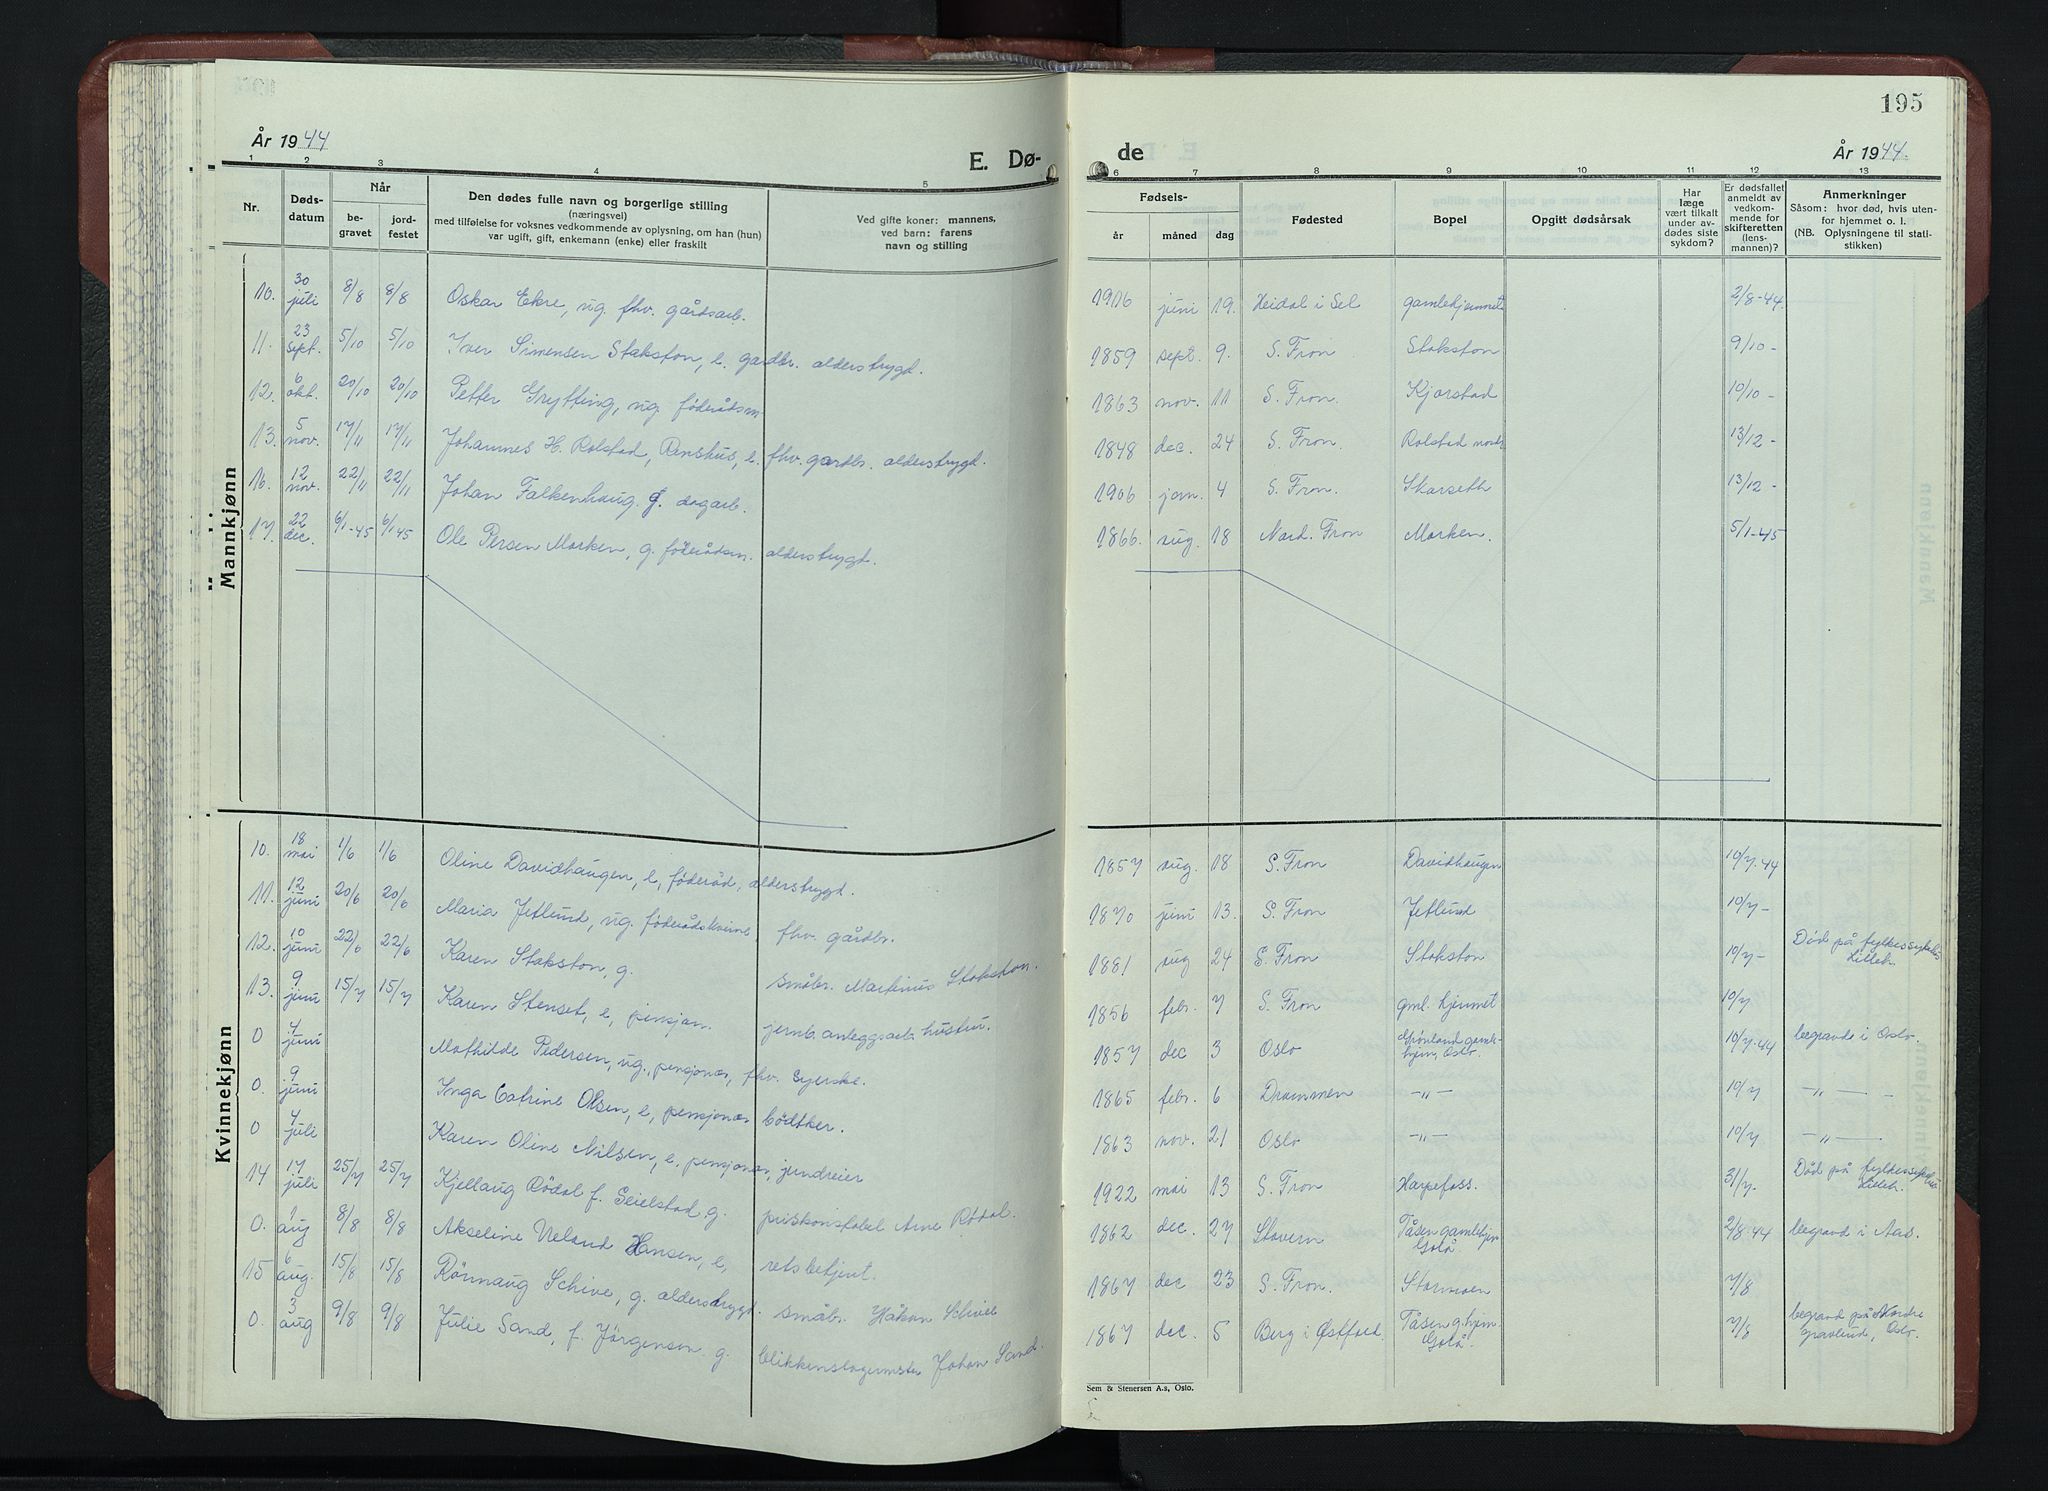 195
År 1944
E. Dø-
de
År 1944.
1 2 3 4 5 6 7 8 9 10 11 12 13
Nr.
Døds-
datum
Når
be-
gravet
jord-
festet
Den dødes fulle navn og borgerlige stilling
(næringsvei)
med tilføielse for voksnes vedkommende av oplysning, om han (hun)
var ugift, gift, enkemann (enke) eller fraskilt
Ved gifte koner: mannens,
ved barn: farens
navn og stilling
Fødsels-
år måned dag
Fødested
Bopel
Opgitt dødsårsak
Har
læge
vært tilkalt
under av-
dødes siste
sykdom?
Er dødsfallet
anmeldt av
vedkom-
mende for
skifteretten
(lens-
mannen)?
Anmerkninger
Såsom: hvor død, hvis uten-
for hjemmet o. l.
(NB. Oplysningene til stati-
stikken)
Mannkjønn
10. 30 juli 8/8 8/8 Oskar Ekre, ug. fhv. gårdsarb. 1916 juni 19. Heidal i Sel gamlehjemmet 2/8-44.
11. 23 sept. 5/10 5/10 Iver Simensen Stokston, e. gardbr. alderstrygd. 1859 sept. 9. S. Fron Stokston 9/10 -
12. 6 okt. 20/10 20/10 Petter Grytting, ug. føderådsm 1863 nov. 11 S. Fron. Kjorstad 10/10 -
13. 5 nov. 17/11 17/11 Johannes H. Rolstad, Renshus, e. fhv. gardbr. alderstrygd. 1848 dec. 24 S. Fron. Rolstad nordr 13/12 -
16. 12 nov. 22/11 22/11 Johan Falkenhaug. g. dagarb. 1906 jan. 4 S. Fron. Skarseth 13/12 -
17. 22 dec. 6/1-45 6/1 45 Ole Persen Morken, g. føderådsm. alderstrygd. 1866. aug. 18 Nord. Fron Morken. 5/1-45
Kvinnekjønn
10. 18 mai 1/6 1/6 Oline Davidhaugen, e, føderåd, alderstrygd. 1857 aug. 18 S. Fron Davidhaugen 10/7-44
11. 12 juni 20/6 20/6 Maria Jetlund, ug. føderådskvinne fhv. gårdbr. 1870 juni 13. S. Fron Jetlund 10/7 -
12. 10 juni 22/6 22/6 Karen Stokston, g. småbr. Martinus Stokston. 1881 aug 24 S. Fron Stokston 10/7 - Død på fylkessykehus
Lilleh.
13. 9 juni 15/7 15/7 Karen Stenset, e, pensjon. jernb. anleggsarb. hustru. 1856 febr. 7 S. Fron gml. hjemmet 10/7
0 7 juni Mathilde Pedersen, ug., pensjonær, fhv. syerske. 1857 dec 3 Oslo Grønland gamle-
hjem, Oslo. 10/7-44 begravde i Oslo.
0 9 juni Inga Catrine Olsen, e, pensjonær bødtker. 1865 febr. 6 Drammen -"- 10/7 -"-
0 7 juli Karen Oline Nilsen, e. pensjonær, 1863 nov. 21 Oslo -"- 10/7 -"-
14 17 juli 25/7 25/7 Kjellaug Rödal f. Seielstad g. Arne Rödal. 1922 mai 13 S. Fron Harpefoss. 31/7. Död på fylkessykehus
Lilleh.
0. 1 aug 8/8 8/8 Akseline Neland Hansen, e, retsbetjent. 1862 dec. 27 Stavern Tåsen gamlehjem
Golå 2/8-44 begravd i Aas.
15 6 aug. 15/8 15/8 Rönnaug Schive, g. alderstrygd. småbr. Håkon Schive 1867 dec 23 S. Fron. Stormoen 7/8
0. 3 aug 9/8 9/8 Julie Sand, f. Jörgensen g. blikkenslagermester Johan Sand. 1867 dec. 5 Berg i Østfold. Tåsen g.hjem.
Golå. 7/8 begravd på Nordre
gravlund, Oslo.
Sem & Stenersen A.s, Oslo.